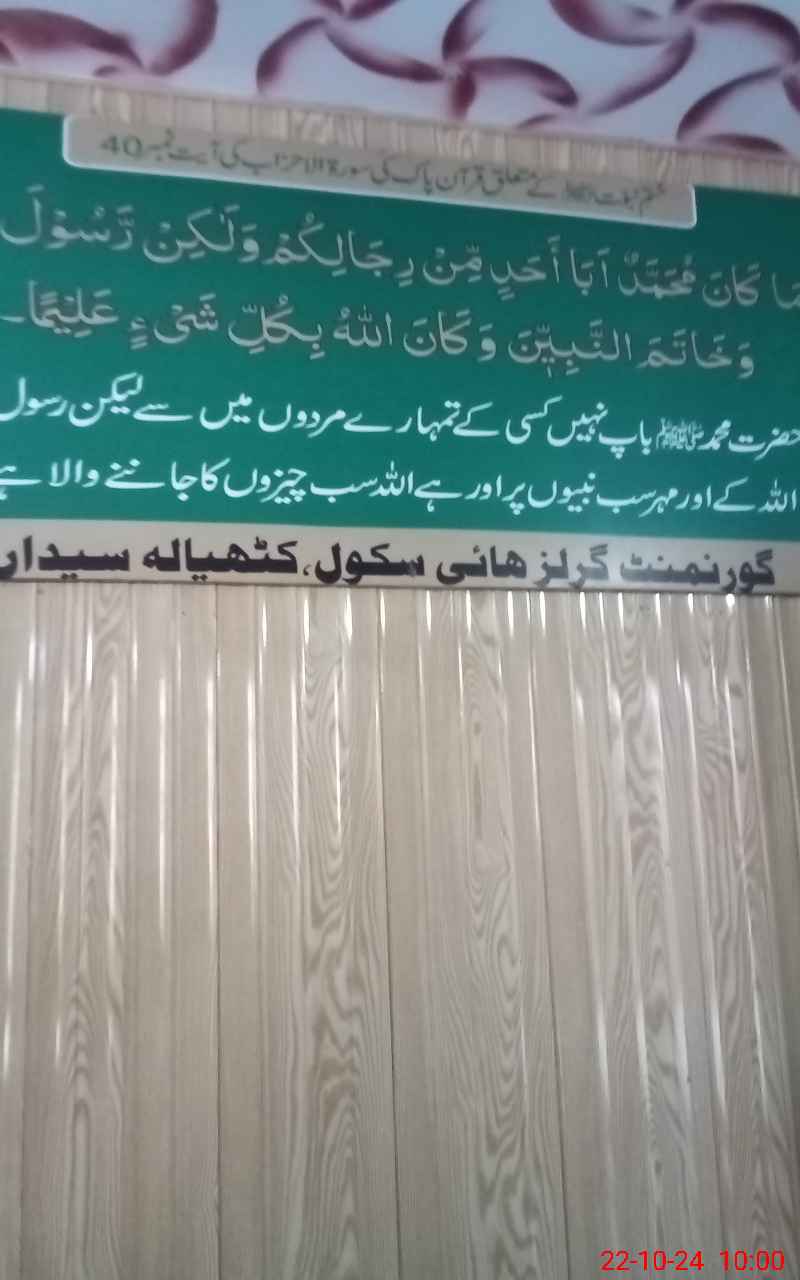 ختم نبوت ﷺ کے متعلق قرآن پاک کی سورۃ الاحزاب کی آیت نمبر 40
مَا كَانَ مُحَمَّدٌ اَبَآ اَحَدٍ مِّنْ رِجَالِكُمْ وَلٰكِنْ رَّسُوْلَ
وَخَاتَمَ النَّبِيّٖنَ وَكَانَ اللهُ بِكُلِّ شَیْءٍ عَلِيْمًا۔
حضرت محمد ﷺ باپ نہیں کسی کے تمہارے مردوں میں سے لیکن رسول
اللہ کے اور مہر سب نبیوں پر اور ہے اللہ سب چیزوں کا جاننے والا ہے
گورنمنٹ گرلز ھائی سکول، کٹھیالہ سیدار
22-10-24 10:00